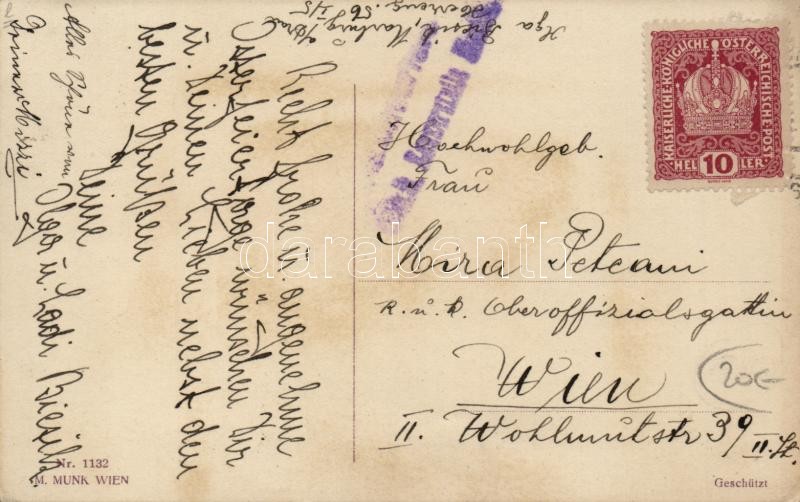 Hochwohlgeb.
Frau
Mira Peteani
K. u. k. Oberoffizialsgattin
Wien
II. Wohlmutstr 39
II. St.
Recht frohe u. angenehme
Osterfeiertage wünschen Dir
u. Deinen Lieben nebst den
besten Grüßen
Deine
Olga u. Ladi
Alles Schöne von
Deiner Mizzi
KAISERLICHE KÖNIGLICHE ÖSTERREICHISCHE POST
HELLER
10
20€
Nr. 1132
M. MUNK WIEN
Geschützt
darabanth.com